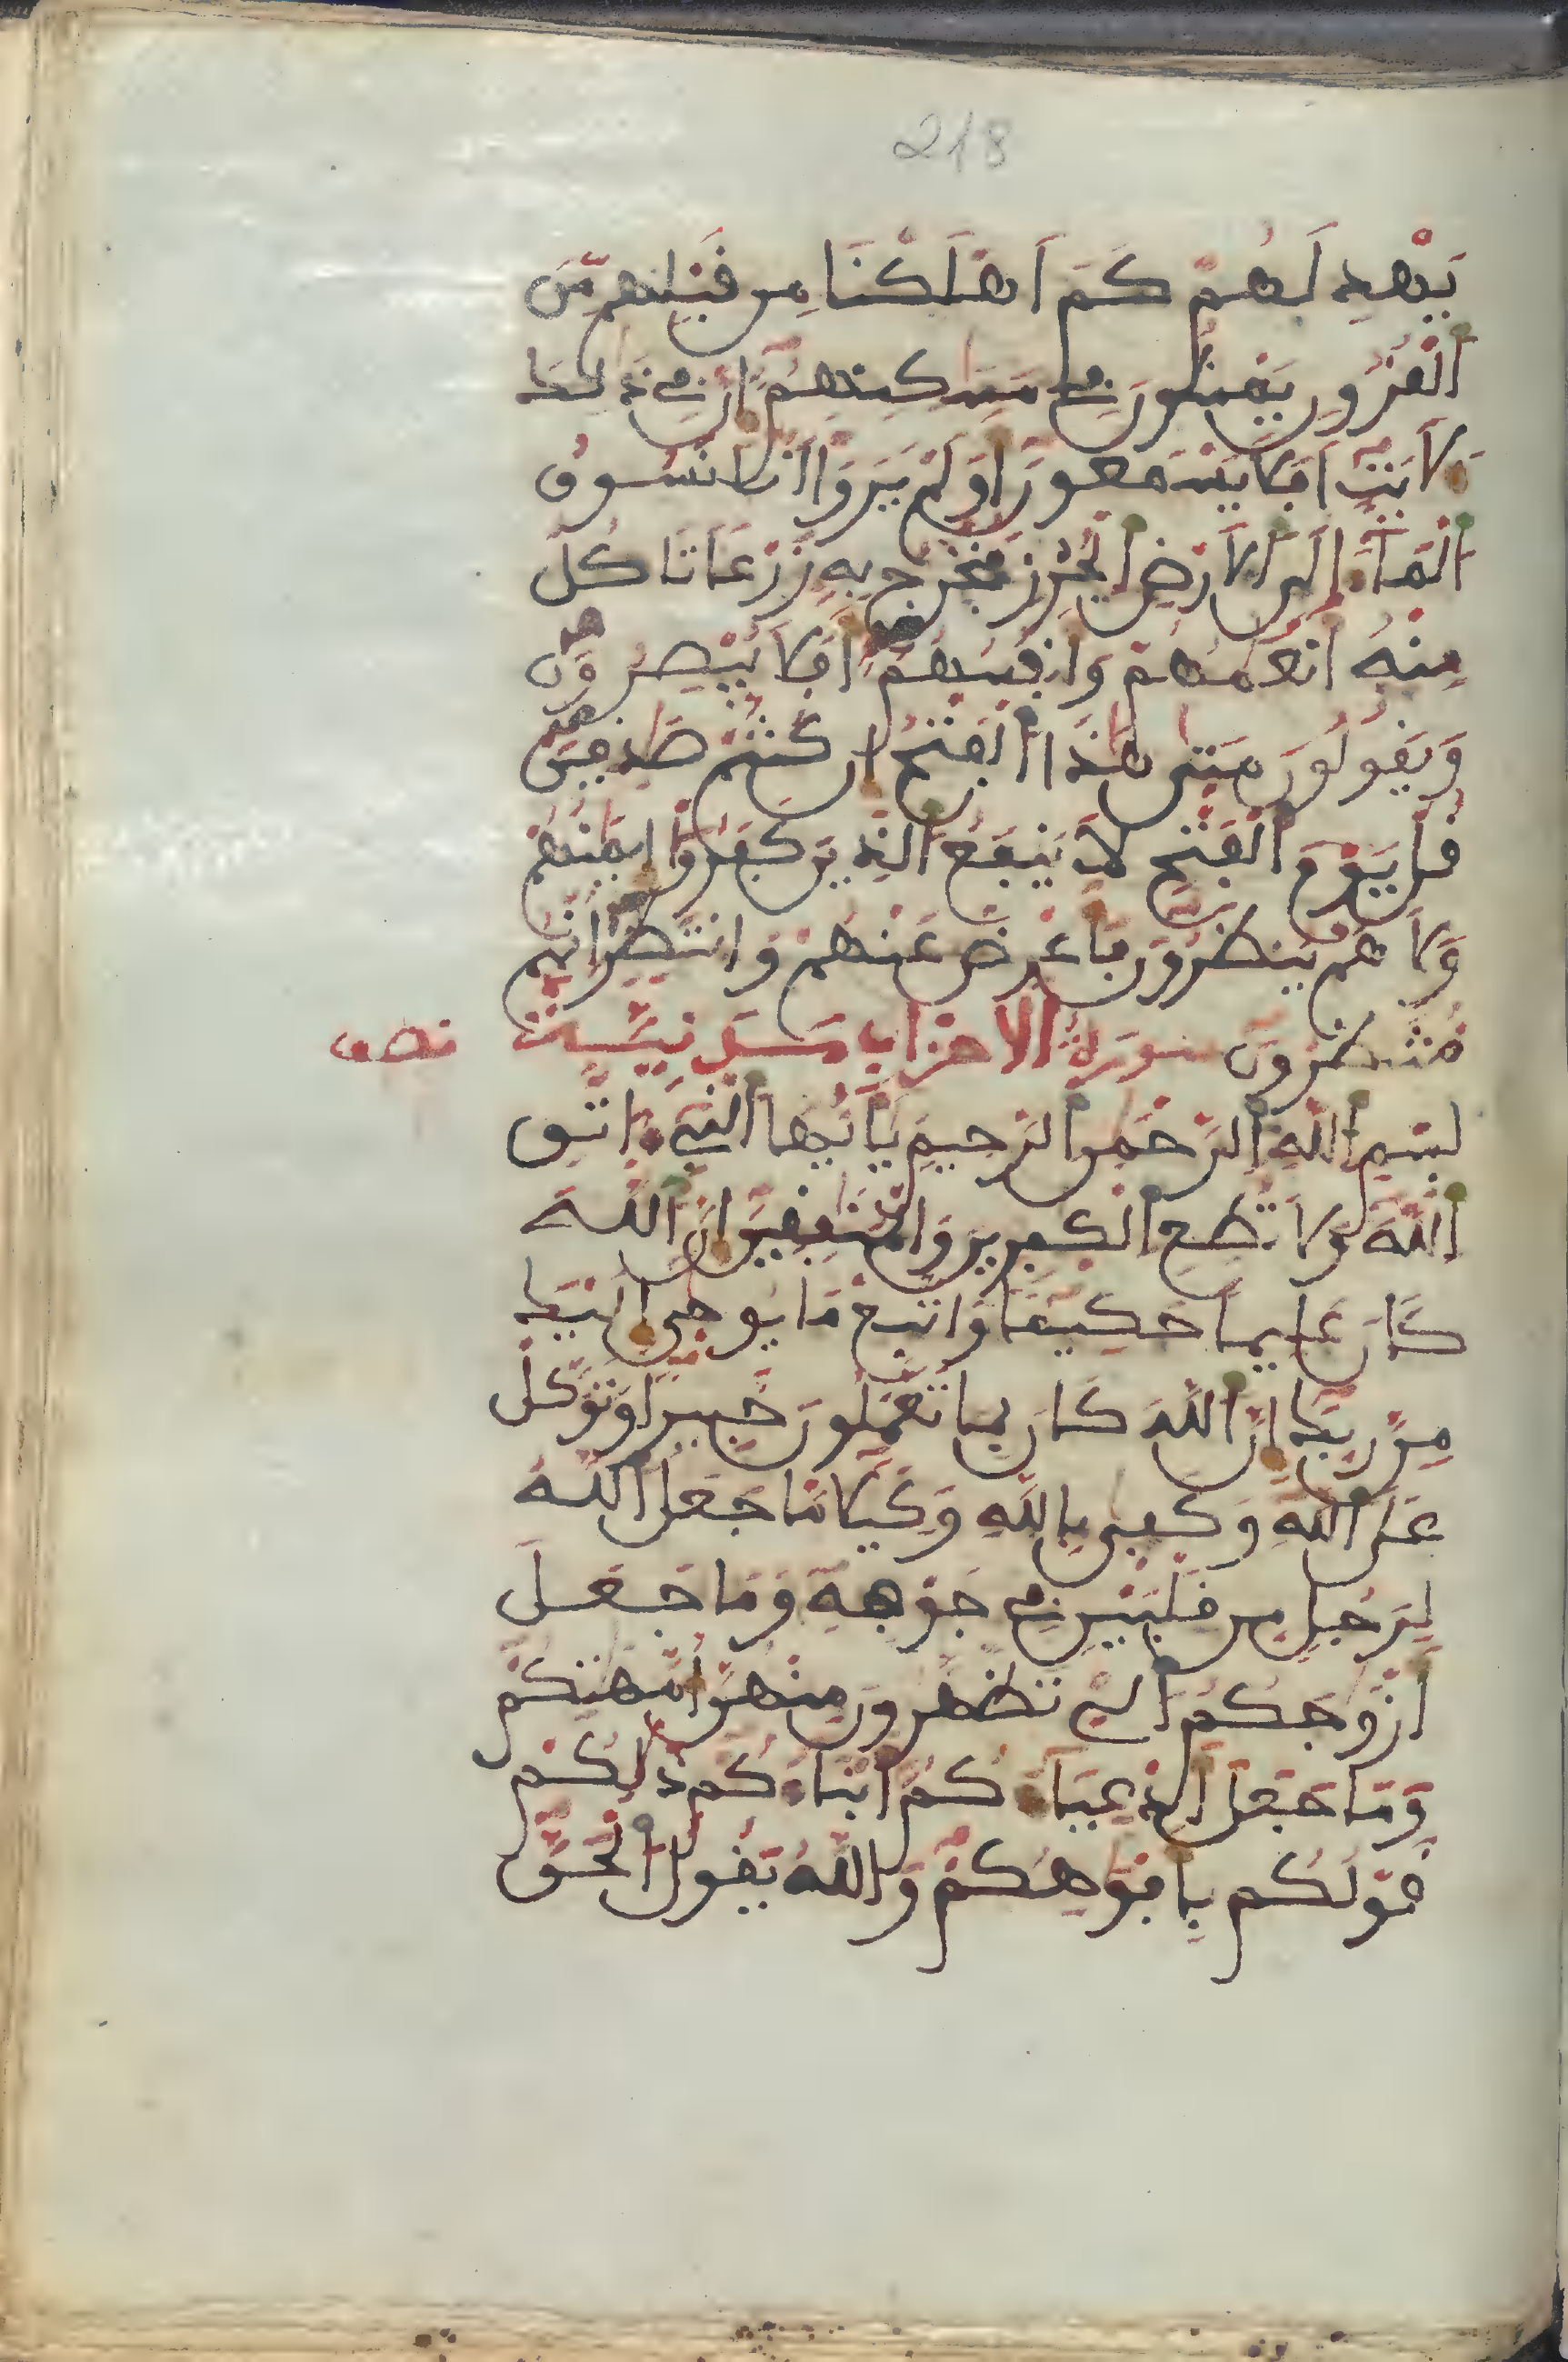 218
يَهْدِ لَهُمْ كَمَ اَهْلَكْنَا مِن قَبْلِهِم مِّنَ
اَ۬لْقُرُونِ يَمْشُونَ فِے مَسَٰكِنِهِمُۥٓ إِنَّ فِے ذَٰلِكَ
لَأَيَٰتٍ اَفَلَا يَسْمَعُونَ أَوَلَمْ يَرَوَاْ اَنَّا نَسُوقُ
اُ۬لْمَآءَ إِلَى اَ۬لَارْضِ اِ۬لْجُرُزِ فَنُخْرِجُ بِهِۦ زَرْعاً تَاكُلُ
مِنْهُ أَنْعَٰمُهُمْ وَأَنفُسُهُمُۥٓ أَفَلَا يُبْصِرُونَ
وَيَقُولُونَ مَتَىٰ هَٰذَا اَ۬لْفَتْحُ إِن كُنتُمْ صَٰدِقِينَ
قُلْ يَوْمَ اَ۬لْفَتْحِ لَا يَنفَعُ اُ۬لذِينَ كَفَرُوٓاْ إِيمَٰنُهُمْ
وَلَا هُمْ يُنظَرُونَ فَأَعْرِضْ عَنْهُمْ وَانتَظِرِ اِنَّهُم
مُّنتَظِرُونَ سورة الاحزاب مدنية نصف
بِسْمِ اِ۬للَّهِ اِ۬لرَّحْمَٰنِ اِ۬لرَّحِيمِ يَٰٓأَيُّهَا اَ۬لنَّبِےٓءُ اتَّقِ
اِ۬للَّهَ وَلَا تُطِعِ اِ۬لْكَٰفِرِينَ وَالْمُنَٰفِقِينَ إِنَّ اَ۬للَّهَ
كَانَ عَلِيماً حَكِيماً وَاتَّبِعْ مَا يُوحَىٰٓ إِلَيْكَ
مِن رَّبِّكَ إِنَّ اَ۬للَّهَ كَانَ بِمَا تَعْمَلُونَ خَبِيراً وَتَوَكَّلْ
عَلَى اَ۬للَّهِ وَكَفَىٰ بِاللَّهِ وَكِيلاً مَّا جَعَلَ اَ۬للَّهُ
لِرَجُلٍ مِّن قَلْبَيْنِ فِے جَوْفِهِۦ وَمَا جَعَلَ
أَزْوَٰجَكُمُ اُ۬لَٰٓـِٔے تَظَّهَّرُونَ مِنْهُنَّ أُمَّهَٰتِكُمْ
وَمَا جَعَلَ أَدْعِيَآءَكُمُۥٓ أَبْنَآءَكُمْ ذَٰلِكُمْ
قَوْلُكُم بِأَفْوَٰهِكُمْ وَاللَّهُ يَقُولُ اُ۬لْحَقَّ